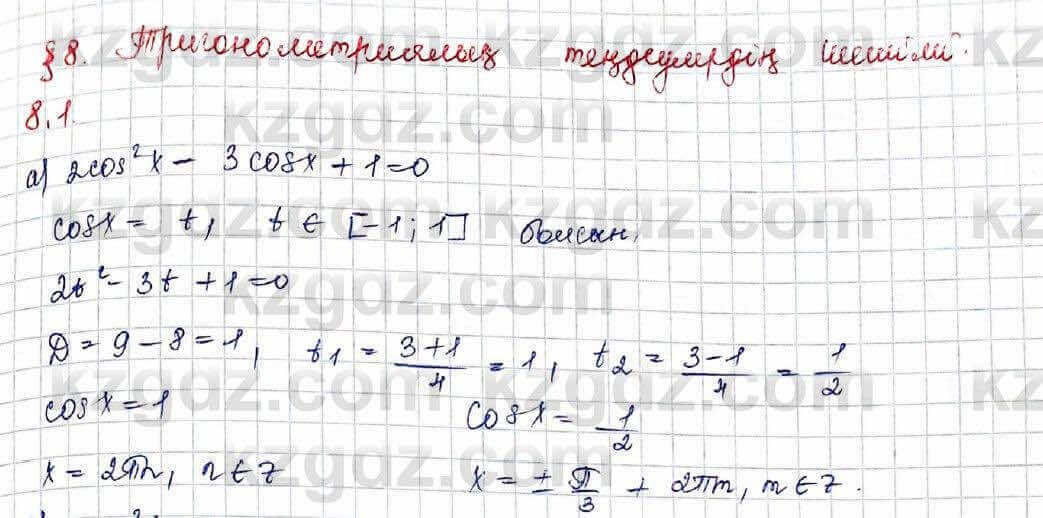 §8. Тригонометриялық теңдеулердің шешімі.
8.1.
а) 2cos²x - 3cosx + 1 = 0
cosx = t, t ∈ [-1; 1] болсын,
2t² - 3t + 1 = 0
D = 9 - 8 = 1, t₁ = (3+1)/4 = 1, t₂ = (3-1)/4 = 1/2
cosx = 1 cosx = 1/2
x = 2πn, n ∈ Z x = ± π/3 + 2πm, m ∈ Z.
kzgdz.com